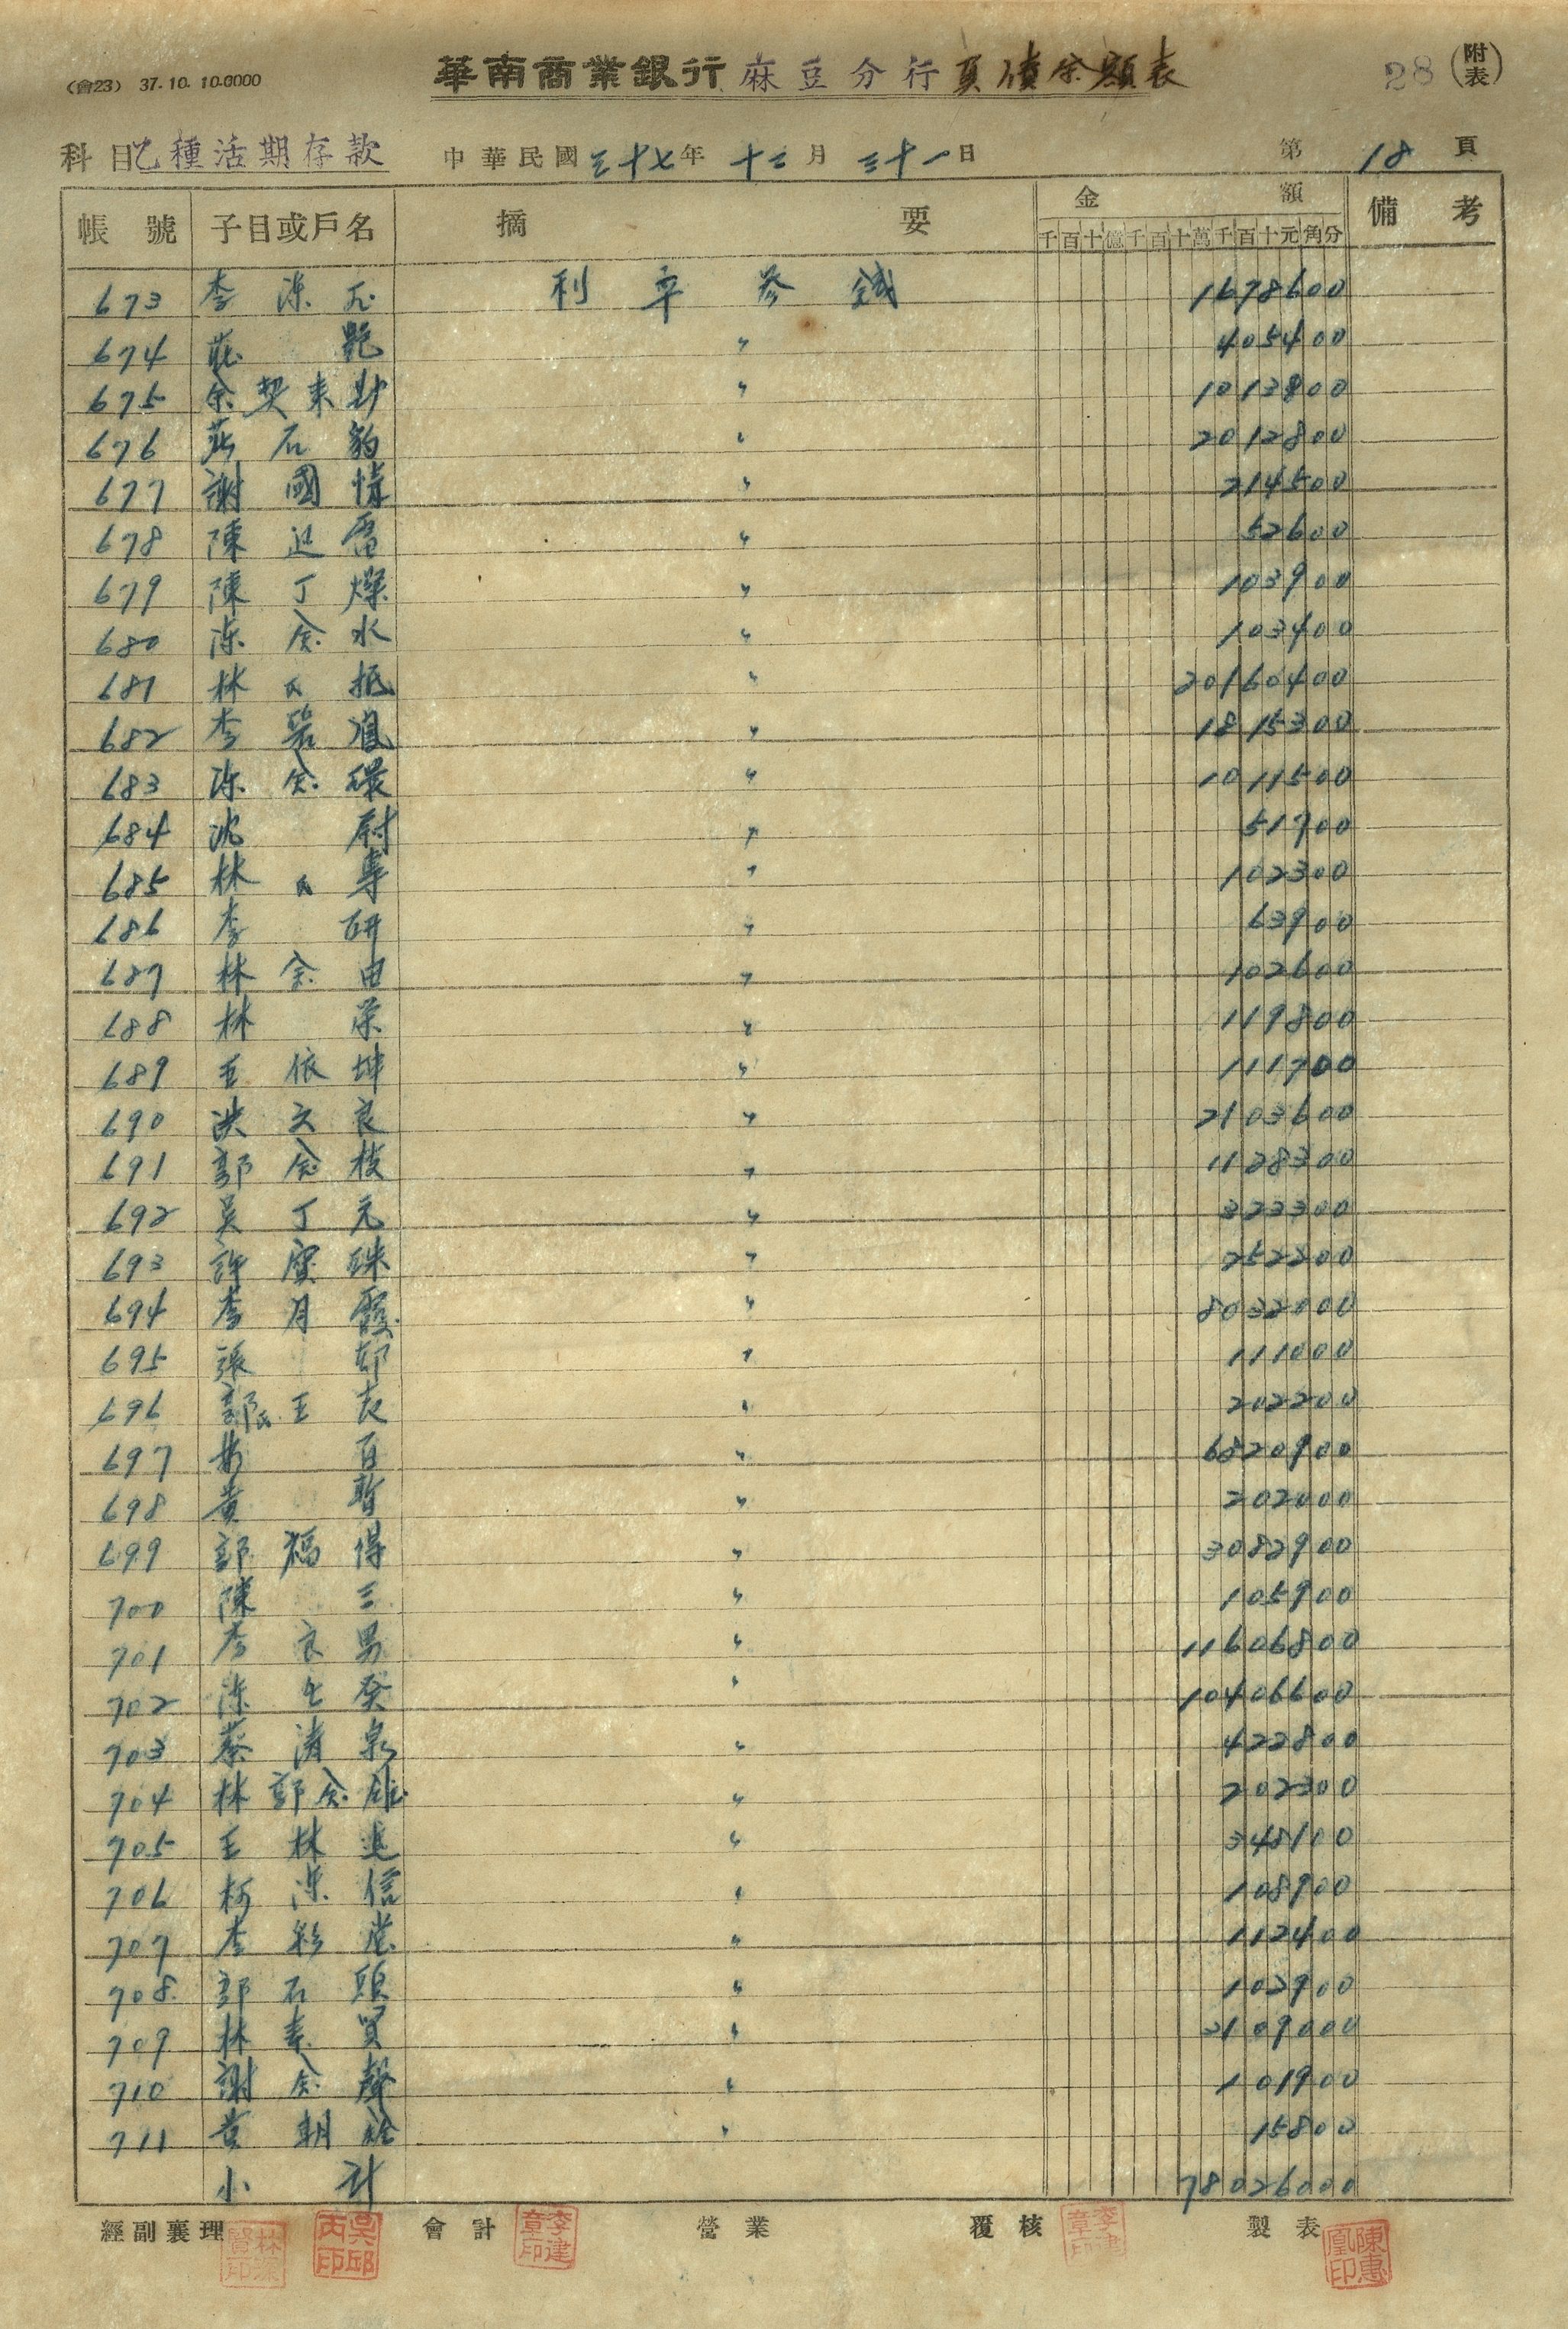 (會23) 37.10.10.0000
華南商業銀行 麻豆分行負債余額表
28 (附表)
科目 乙種活期存款 中華民國三十七年 十二月 三十一日 第 18 頁
帳號 子目或戶名 摘要 金額 備考
千百十億千百十萬千百十元角分
673 李 利率參錢 1678600
674 莊艷 〃 405400
675 〃 1013800
676 石 〃 2012800
677 謝國 〃 214500
678 陳 〃 52600
679 陳丁燦 〃 103900
680 陳金水 〃 103400
681 林氏抵 〃 20160400
682 李 〃 1815300
683 陳金環 〃 1011500
684 沈尉 〃 51700
685 林氏專 〃 102300
686 李研 〃 63900
687 林金由 〃 102600
688 林榮 〃 119800
689 王依坤 〃 111700
690 洪文良 〃 2103600
691 郭金枝 〃 1128300
692 吳丁元 〃 323300
693 許寶珠 〃 252200
694 李月霞 〃 8032000
695 張 〃 111000
696 郭氏王 〃 202200
697 百 〃 6320900
698 黃暫 〃 202000
699 郭福得 〃 3082900
700 陳三 〃 105900
701 李良男 〃 11606800
702 陳癸 〃 10406600
703 蔡清泉 〃 422800
704 林郭金雄 〃 202300
705 王林進 〃 348100
706 柯深信 〃 108900
707 李彩 〃 112400
708 郭石頭 〃 102900
709 林素 〃 2109000
710 謝金聲 〃 101900
711 黃朝 〃 15800
小計 78026000
經副襄理 會計 營業 覆核 製表
吳邱丙印 李建章印 李建章印 陳惠凰印